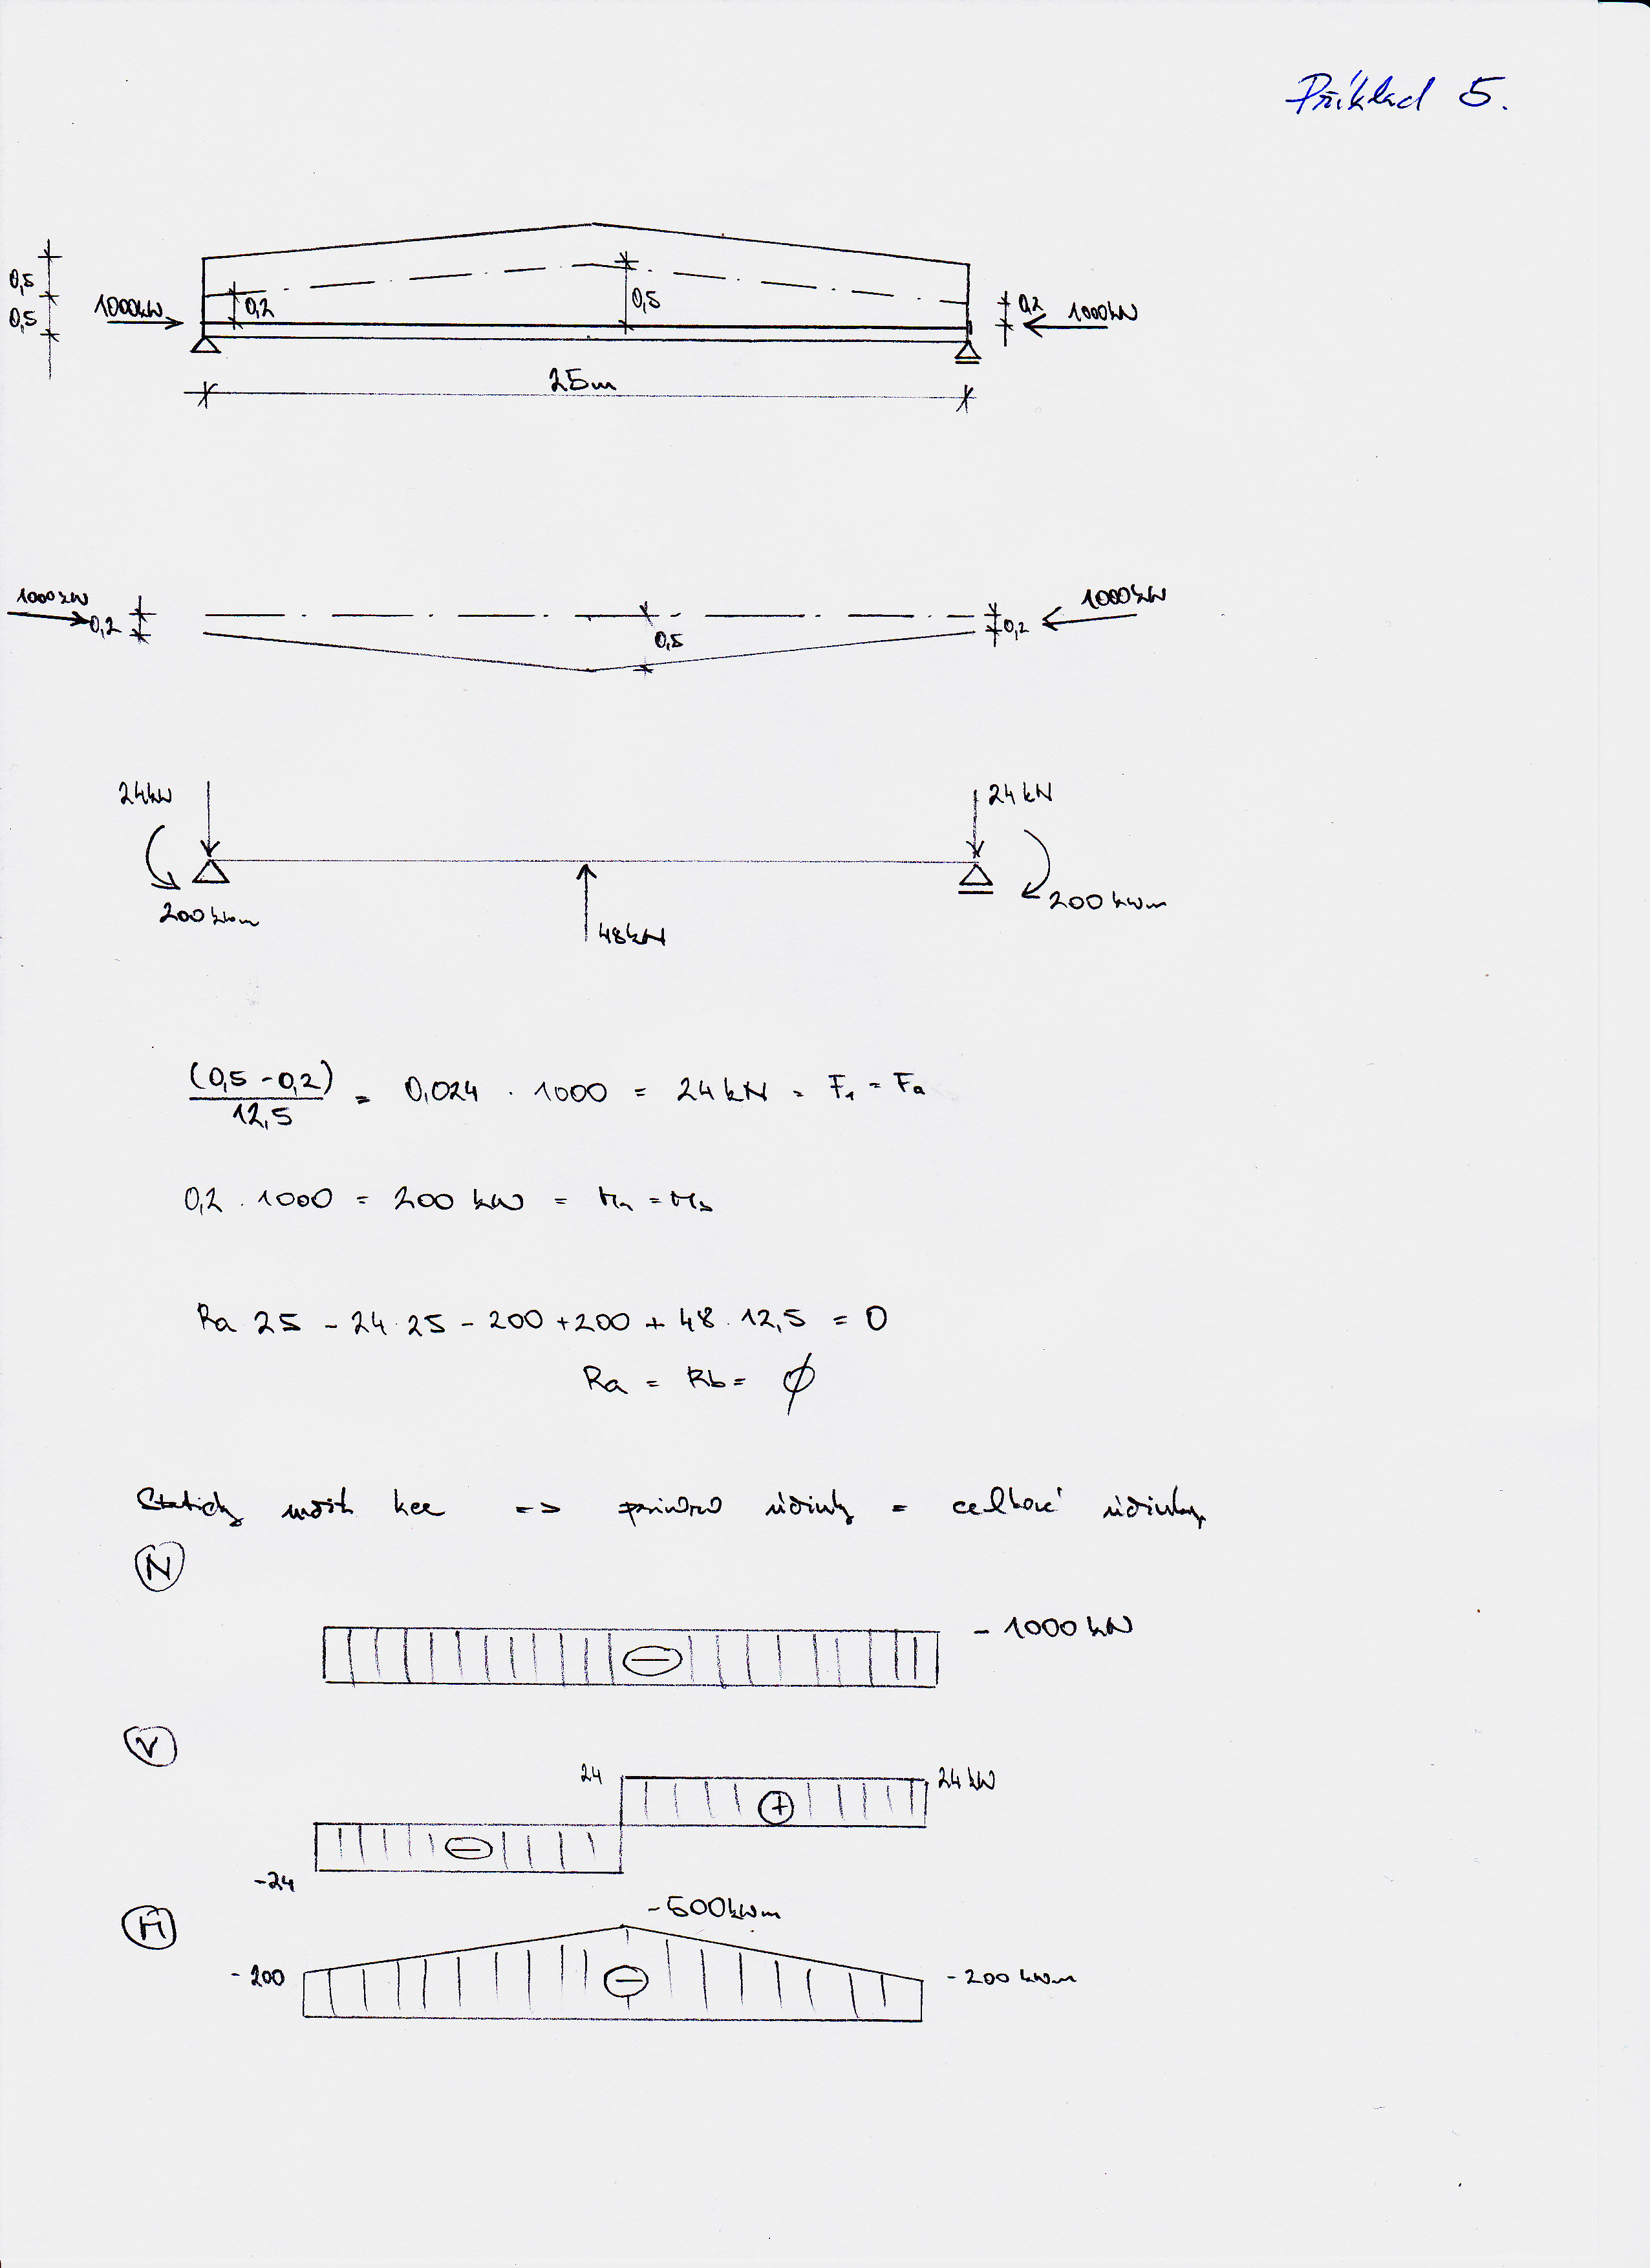 Příklad 5.
0,5
0,5
1000kN
0,2
0,5
0,2
1000kN
25m
1000kN
0,2
0,5
0,2
1000kN
24kN
24kN
200kNm
200kNm
48kN
(0,5 - 0,2) / 12,5 = 0,024 . 1000 = 24kN = F1 = Fa
0,2 . 1000 = 200 kN = Ma = Mb
Ra 25 - 24.25 - 200 + 200 + 48 . 12,5 = 0
Ra = Rb = ϕ
Staticky určitá kce => účinky = celkové účinky
N
- 1000kN
V
24
24kN
-24
M
-500kNm
-200
-200kNm